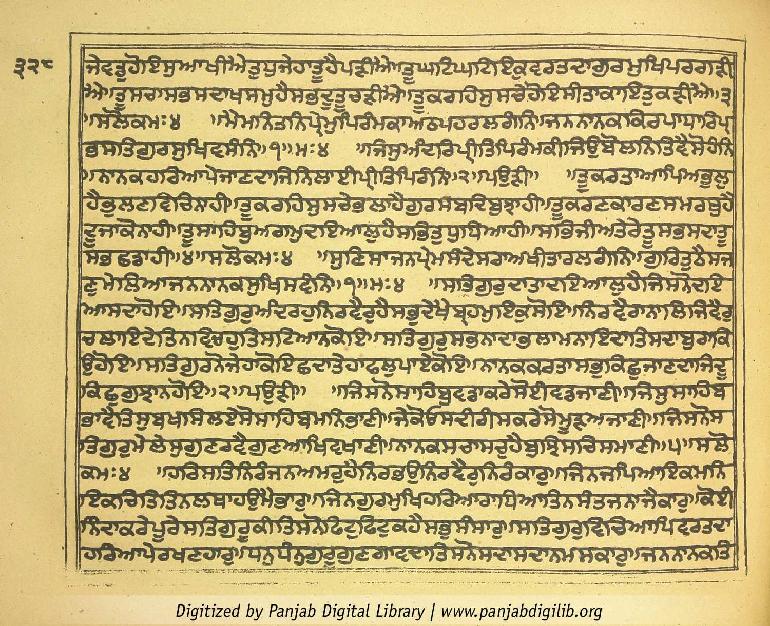 ੩੨੮
ਜੇਵਡੁਹੋਇਸੁਆਖੀਐਤੁਧੁਜੇਹਾਤੂਹੈਪੜੀਐ॥ਤੂਘਟਿਘਟਿਇਕੁਵਰਤਦਾਗੁਰਮੁਖਿਪਰਗੜੀ
ਐ॥ਤੂਸਚਾਸਭਸਦਾਖਸਮੁਹੈਸਭਦੂਤੂਚੜੀਐ॥ਤੂਕਰਹਿਸੁਸਚੇਹੋਇਸੀਤਾਕਾਇਤੁਕੜੀਐ॥੩
॥ਸਲੋਕਮਃ੪ ॥ਮੈਮਨਿਤਨਿਪ੍ਰੇਮੁਪਿਰੰਮਕਾਅਠੇਪਹਰਲਗੰਨਿ॥ਜਨਨਾਨਕਕਿਰਪਾਧਾਰਿਪ੍ਰ
ਭਸਤਿਗੁਰਸੁਖਿਵਸੰਨਿ॥੧॥ਮਃ੪ ॥ਜਿਨਅੰਦਰਿਪ੍ਰੀਤਿਪਿਰੰਮਕੀਜਿਉਬੋਲਨਿਤਿਵੈਸੋਹੰਨਿ
॥ਨਾਨਕਹਰਿਆਪੇਜਾਣਦਾਜਿਨਿਲਾਈਪ੍ਰੀਤਿਪਿਰੰਨਿ॥੨॥ਪਉੜੀ॥ ॥ਤੂਕਰਤਾਆਪਿਅਭੁਲੁ
ਹੈਭੁਲਣਵਿਚਿਨਾਹੀ॥ਤੂਕਰਹਿਸੁਸਚੇਭਲਾਹੈਗੁਰਸਬਦਿਬੁਝਾਹੀ॥ਤੂਕਰਣਕਾਰਣਸਮਰਥੁਹੈ
ਦੂਜਾਕੋਨਾਹੀ॥ਤੂਸਾਹਿਬੁਅਗਮੁਦਇਆਲੁਹੈਸਭਿਤੁਧੁਧਿਆਹੀ॥ਸਭਿਜੀਅਤੇਰੇਤੂਸਭਸਦਾਤੂ
ਸਭਛਡਾਹੀ॥੪॥ਸਲੋਕਮਃ੪ ॥ਸੁਣਿਸਾਜਨਪ੍ਰੇਮਸੰਦੇਸਰਾਅਖੀਤਾਰਲਗੰਨਿ॥ਗੁਰਿਤੁਠੈਸਜ
ਣੁਮੇਲਿਆਜਨਨਾਨਕਸੁਖਿਸਵੰਨਿ॥੧॥ਮਃ੪ ॥ਸਤਿਗੁਰੁਦਾਤਾਦਇਆਲੁਹੈਜਿਸਨੋਦਇ
ਆਸਦਾਹੋਇ॥ਸਤਿਗੁਰੁਅੰਦਰਹੁਨਿਰਵੈਰੁਹੈਸਭੁਦੇਖੈਬ੍ਰਹਮੁਇਕੁਸੋਇ॥ਨਿਰਵੈਰਾਨਾਲਿਜਿਵੈਰੁ
ਚਲਾਇਦੇਤਿਨਵਿਚਹੁਤਿਸਟਿਆਨਕੋਇ॥ਸਤਿਗੁਰੁਸਭਨਾਦਾਭਲਾਮਨਾਇਦਾਤਿਸਦਾਬੁਰਾਕਿ
ਉਹੋਇ॥ਸਤਿਗੁਰਨੋਜੇਹਾਕੋਇਛਦਾਤੇਹਾਫਲੁਪਾਏਕੋਇ॥ਨਾਨਕਕਰਤਾਸਭੁਕਿਛੁਜਾਣਦਾਜਿਦੂ
ਕਿਛੁਗੁਝਾਨਹੋਇ॥੨॥ਪਉੜੀ॥ ॥ਜਿਸਨੋਸਾਹਿਬੁਵਡਾਕਰੇਸੋਈਵਡਜਾਣੀ॥ਜਿਸੁਸਾਹਿਬ
ਭਾਵੈਤਿਸੁਬਖਸਿਲਏਸੋਸਾਹਿਬਮਨਿਭਾਣੀ॥ਜੇਕੋਓਸਦੀਰੀਸਕਰੇਸੋਮੂੜਅਜਾਣੀ॥ਜਿਸਨੋਸ
ਤਿਗੁਰੁਮੇਲੇਸੁਗੁਣਰਵੈਗੁਣਆਖਿਵਖਾਣੀ॥ਨਾਨਕਸਚਾਸਚੁਹੈਬੁਝਿਸਚਿਸਮਾਣੀ॥੫॥ਸਲੋ
ਕਮਃ੪ ॥ਹਰਿਸਤਿਨਿਰੰਜਨਅਮਰੁਹੈਨਿਰਭਉਨਿਰਵੈਰੁਨਿਰੰਕਾਰੁ॥ਜਿਨਜਪਿਆਇਕਮਨਿ
ਇਕਚਿਤਿਤਿਨਲਥਾਹਉਮੈਭਾਰੁ॥ਜਿਨਗੁਰਮੁਖਿਹਰਿਆਰਾਧਿਆਤਿਨਸੰਤਜਨਾਜੈਕਾਰੁ॥ਕੋਈ
ਨਿੰਦਾਕਰੇਪੂਰੇਸਤਿਗੁਰੂਕੀਤਿਸਨੋਫਿਟੁਫਿਟੁਕਹੈਸਭੁਸੰਸਾਰੁ॥ਸਤਿਗੁਰਵਿਚਿਆਪਿਵਰਤਦਾ
ਹਰਿਆਪੇਰਖਣਹਾਰੁ॥ਧਨੁਧੰਨੁਗੁਰੂਗੁਣਗਾਵਦਾਤਿਸਨੋਸਦਾਸਦਾਨਮਸਕਾਰੁ॥ਜਨਨਾਨਕਤਿ
Digitized by Panjab Digital Library | www.panjabdigilib.org